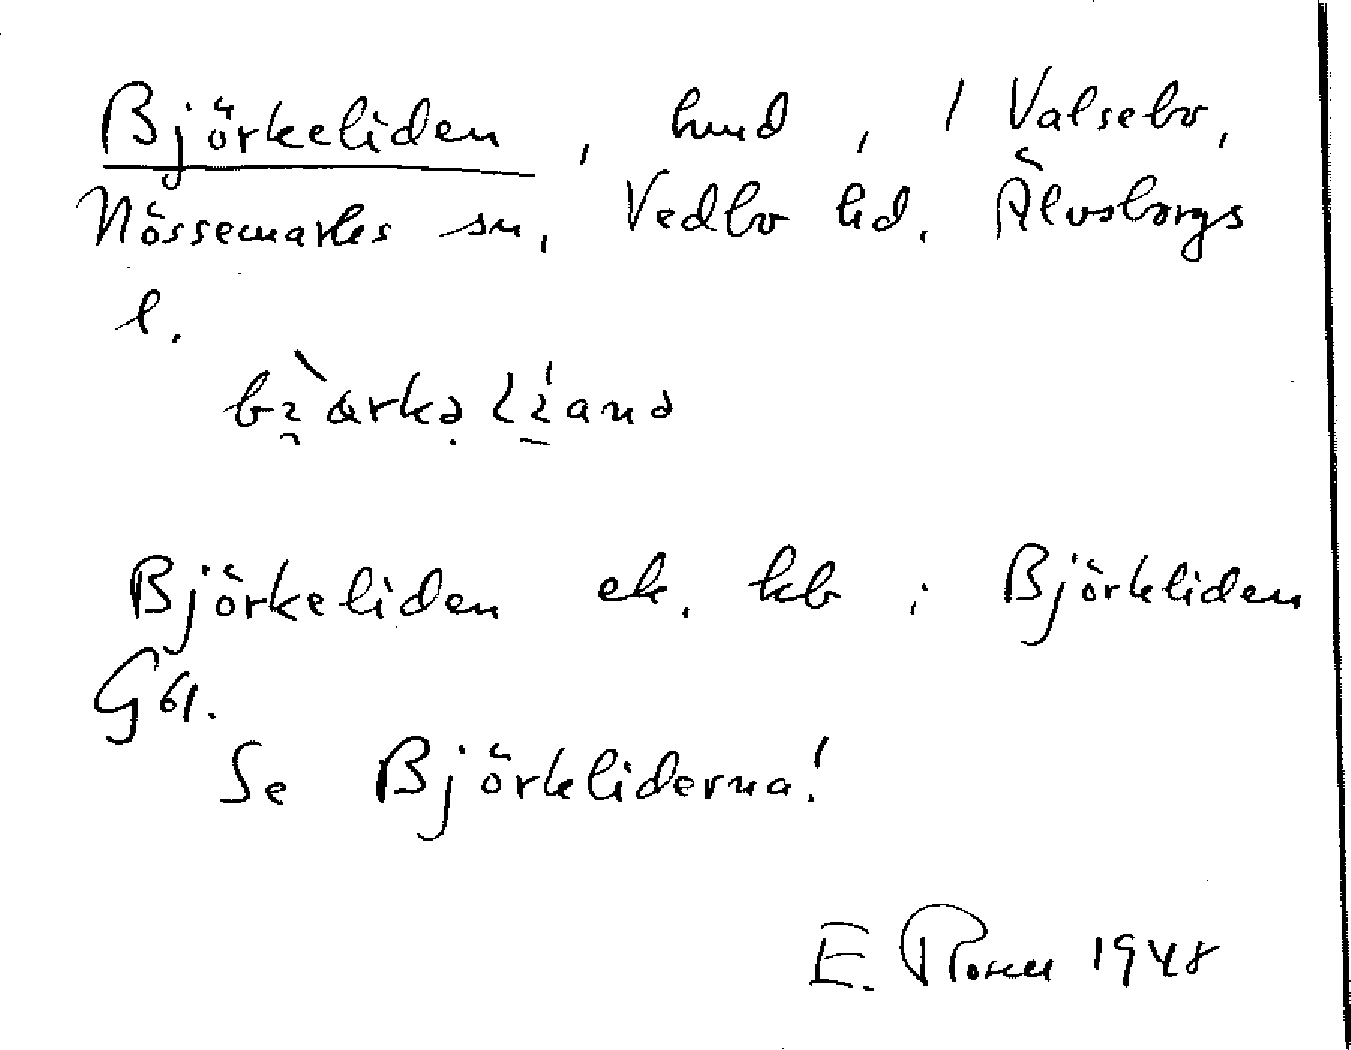 Björkeliden, hmd, / Valsebo,
Nössemarks sn, Vedbo hd. Älvsborgs
l.
Björkeliden ek. kb ; Björkliden
G61.
Se Björkliderna!
E. Rosen 1948